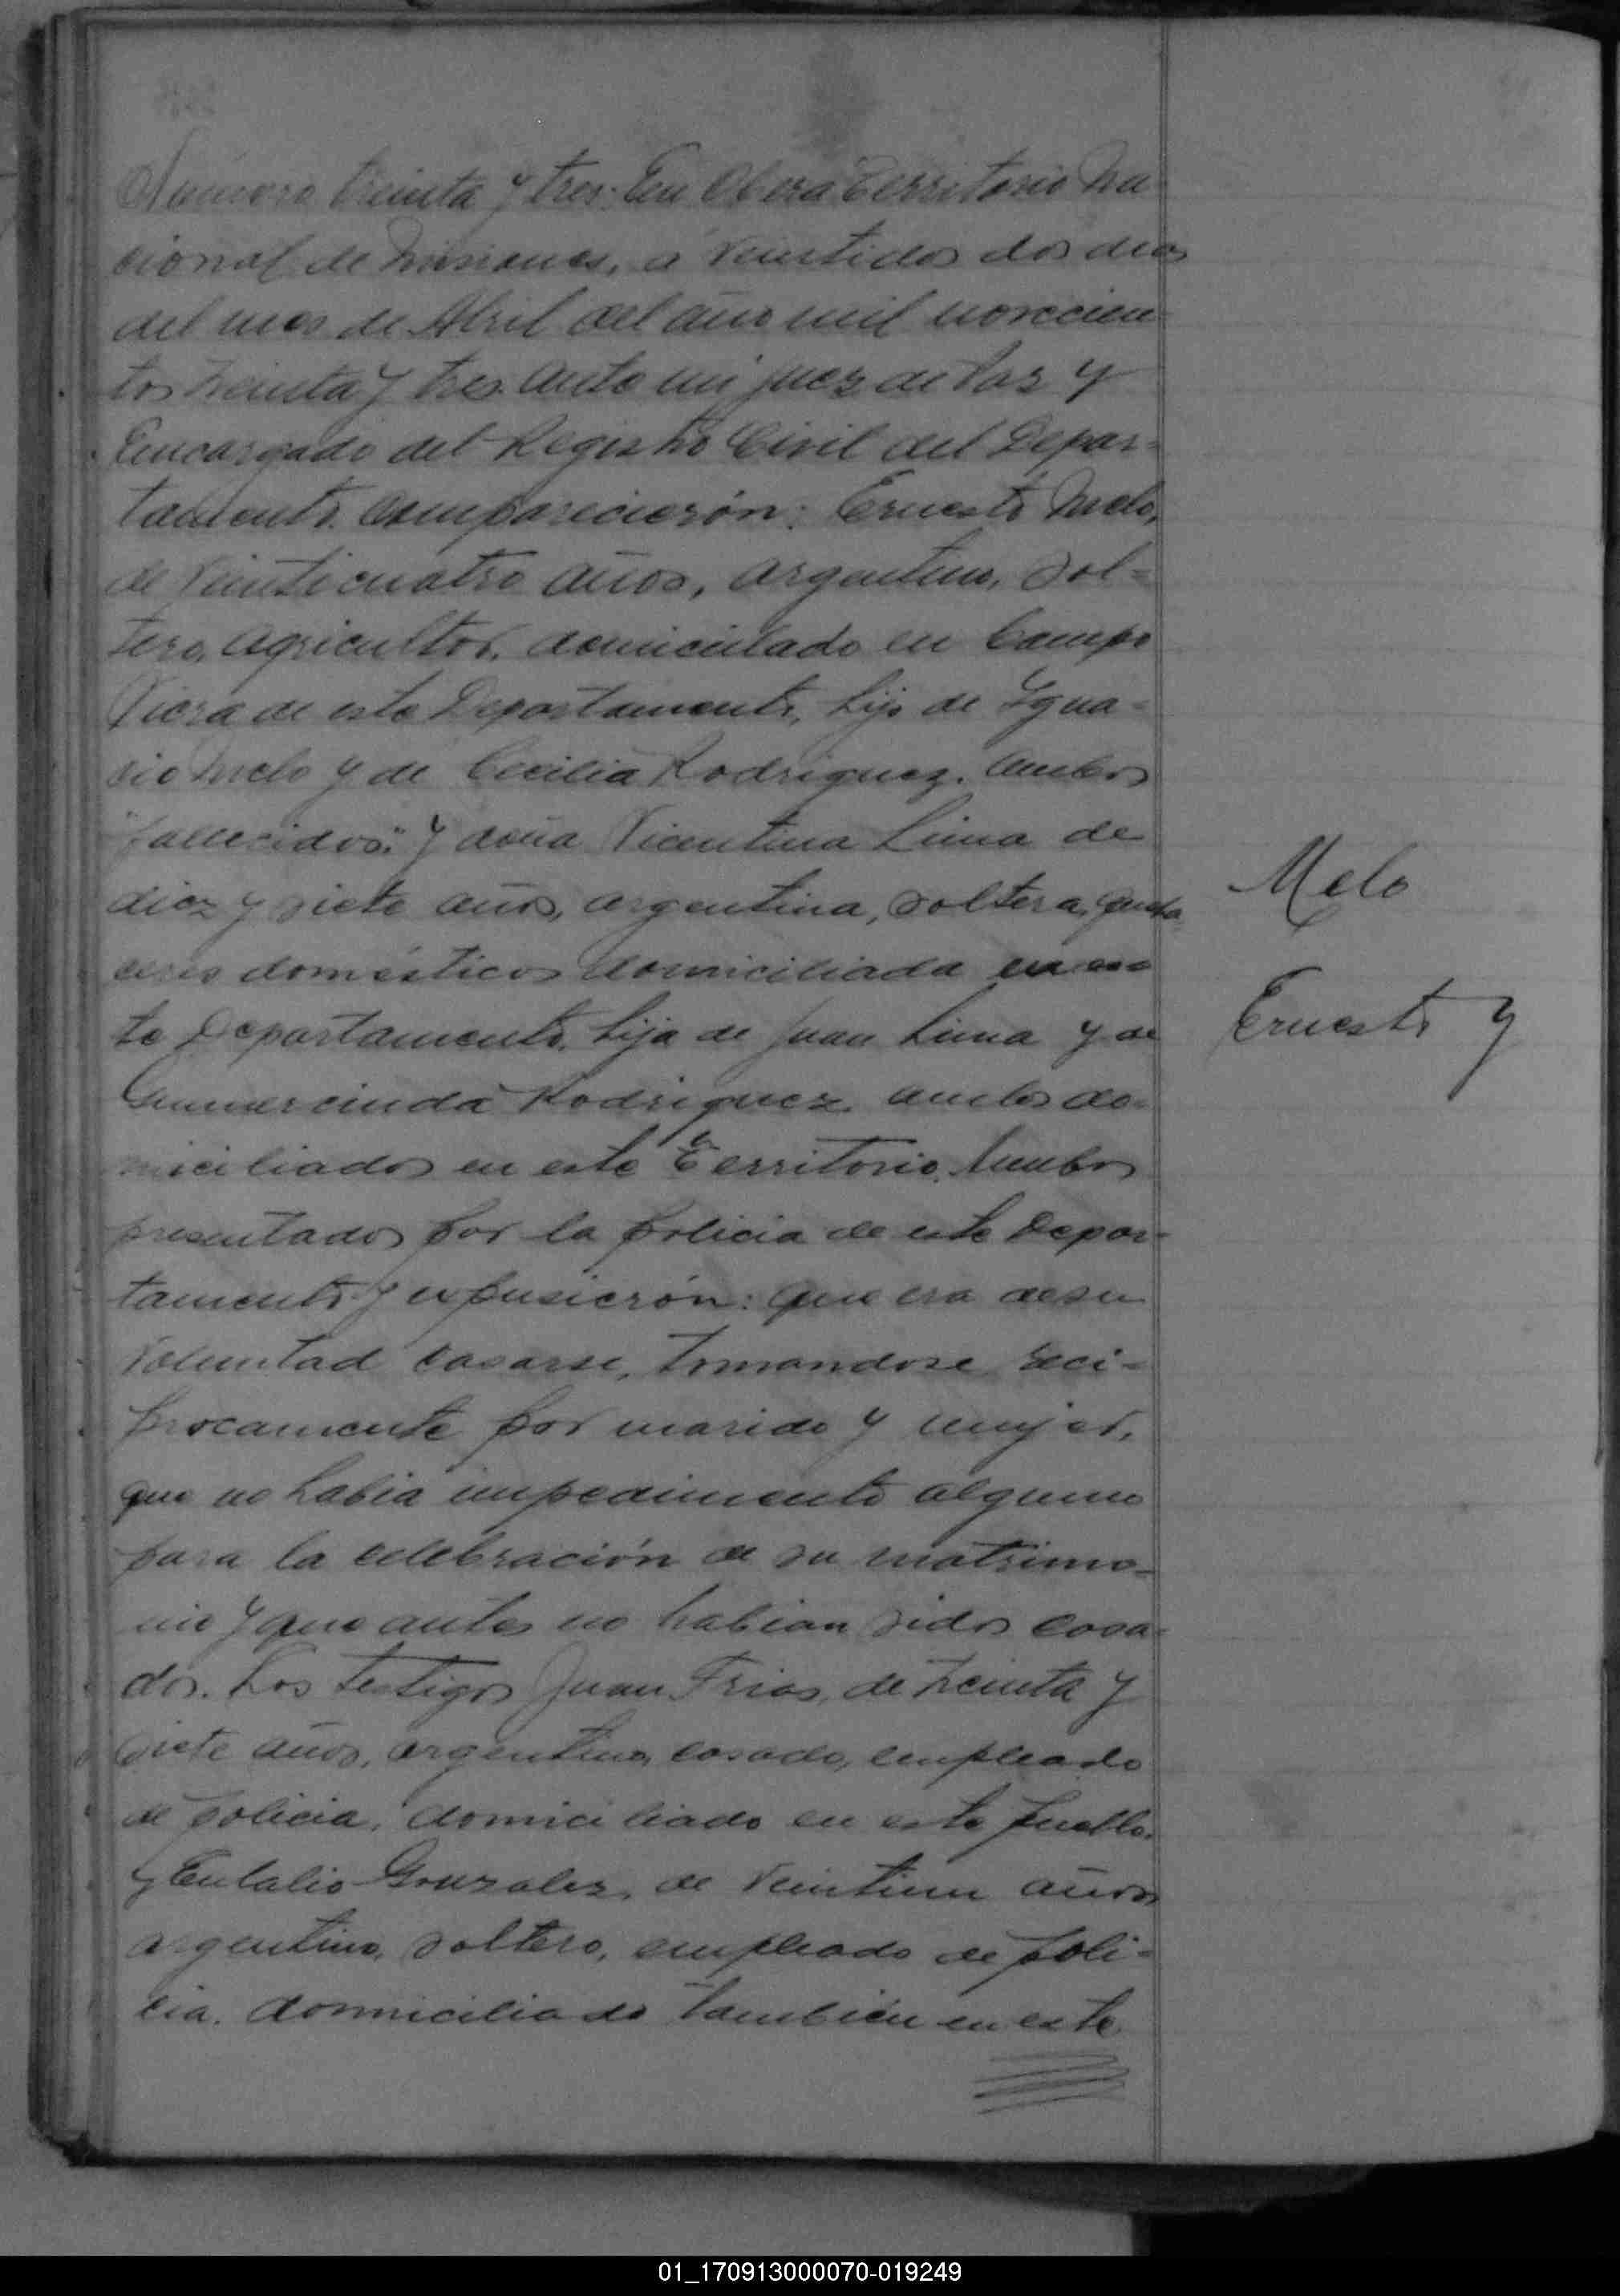 Número treinta y tres. En Oberá Territorio Na-
cional de Misiones, a veintidos dos dias
del mes de Abril del año mil novecien-
tos treinta y tres. Ante mi Juez de Paz y
Encargado del Registro Civil del Depar=
tamento. Comparecierón: Ernesto Melo,
de veinticuatro años, argentino, sol=
tero, agricultor, domiciliado en Campo
Viera de este Departamento, hijo de Igna=
cio Melo y de Cecilia Rodriguez. Ambos
"fallecidos." Y doña Vicentina Lima de
diez y siete años, argentina, soltera, queha
ceres domésticos domiciliada en es=
te Departamento. hija de Juan Lima y de
Gumercinda Rodriguez ambos do=
miciliados en este Territorio. Ambos
presentados por la policia de este Depar=
tamento y expusierón: que era de su
voluntad casarse, tomandose reci=
procamente por marido y mujer,
que no habia impedimento alguno
para la celebración de su matrimo=
nio y que antes no habian sidos casa=
dos. Los testigos Juan Frias, de treinta y
siete años, argentino, casado, empleado
de policia, domiciliado en este pueblo.
y Eulalio Gonzalez, de veintiun años
argentino, soltero, empleado de poli=
cia. domiciliado también en este
Melo
Ernesto y
01_170913000070-019249